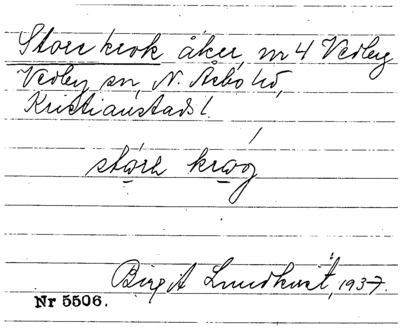 Storr krok åker, nr 4 Vedby
Vedby sn, N. Åsbo hd,
Kristianstads l.
stǫrɛ krǫg
Birgit Lundkvist, 1937.
Nr 5506.